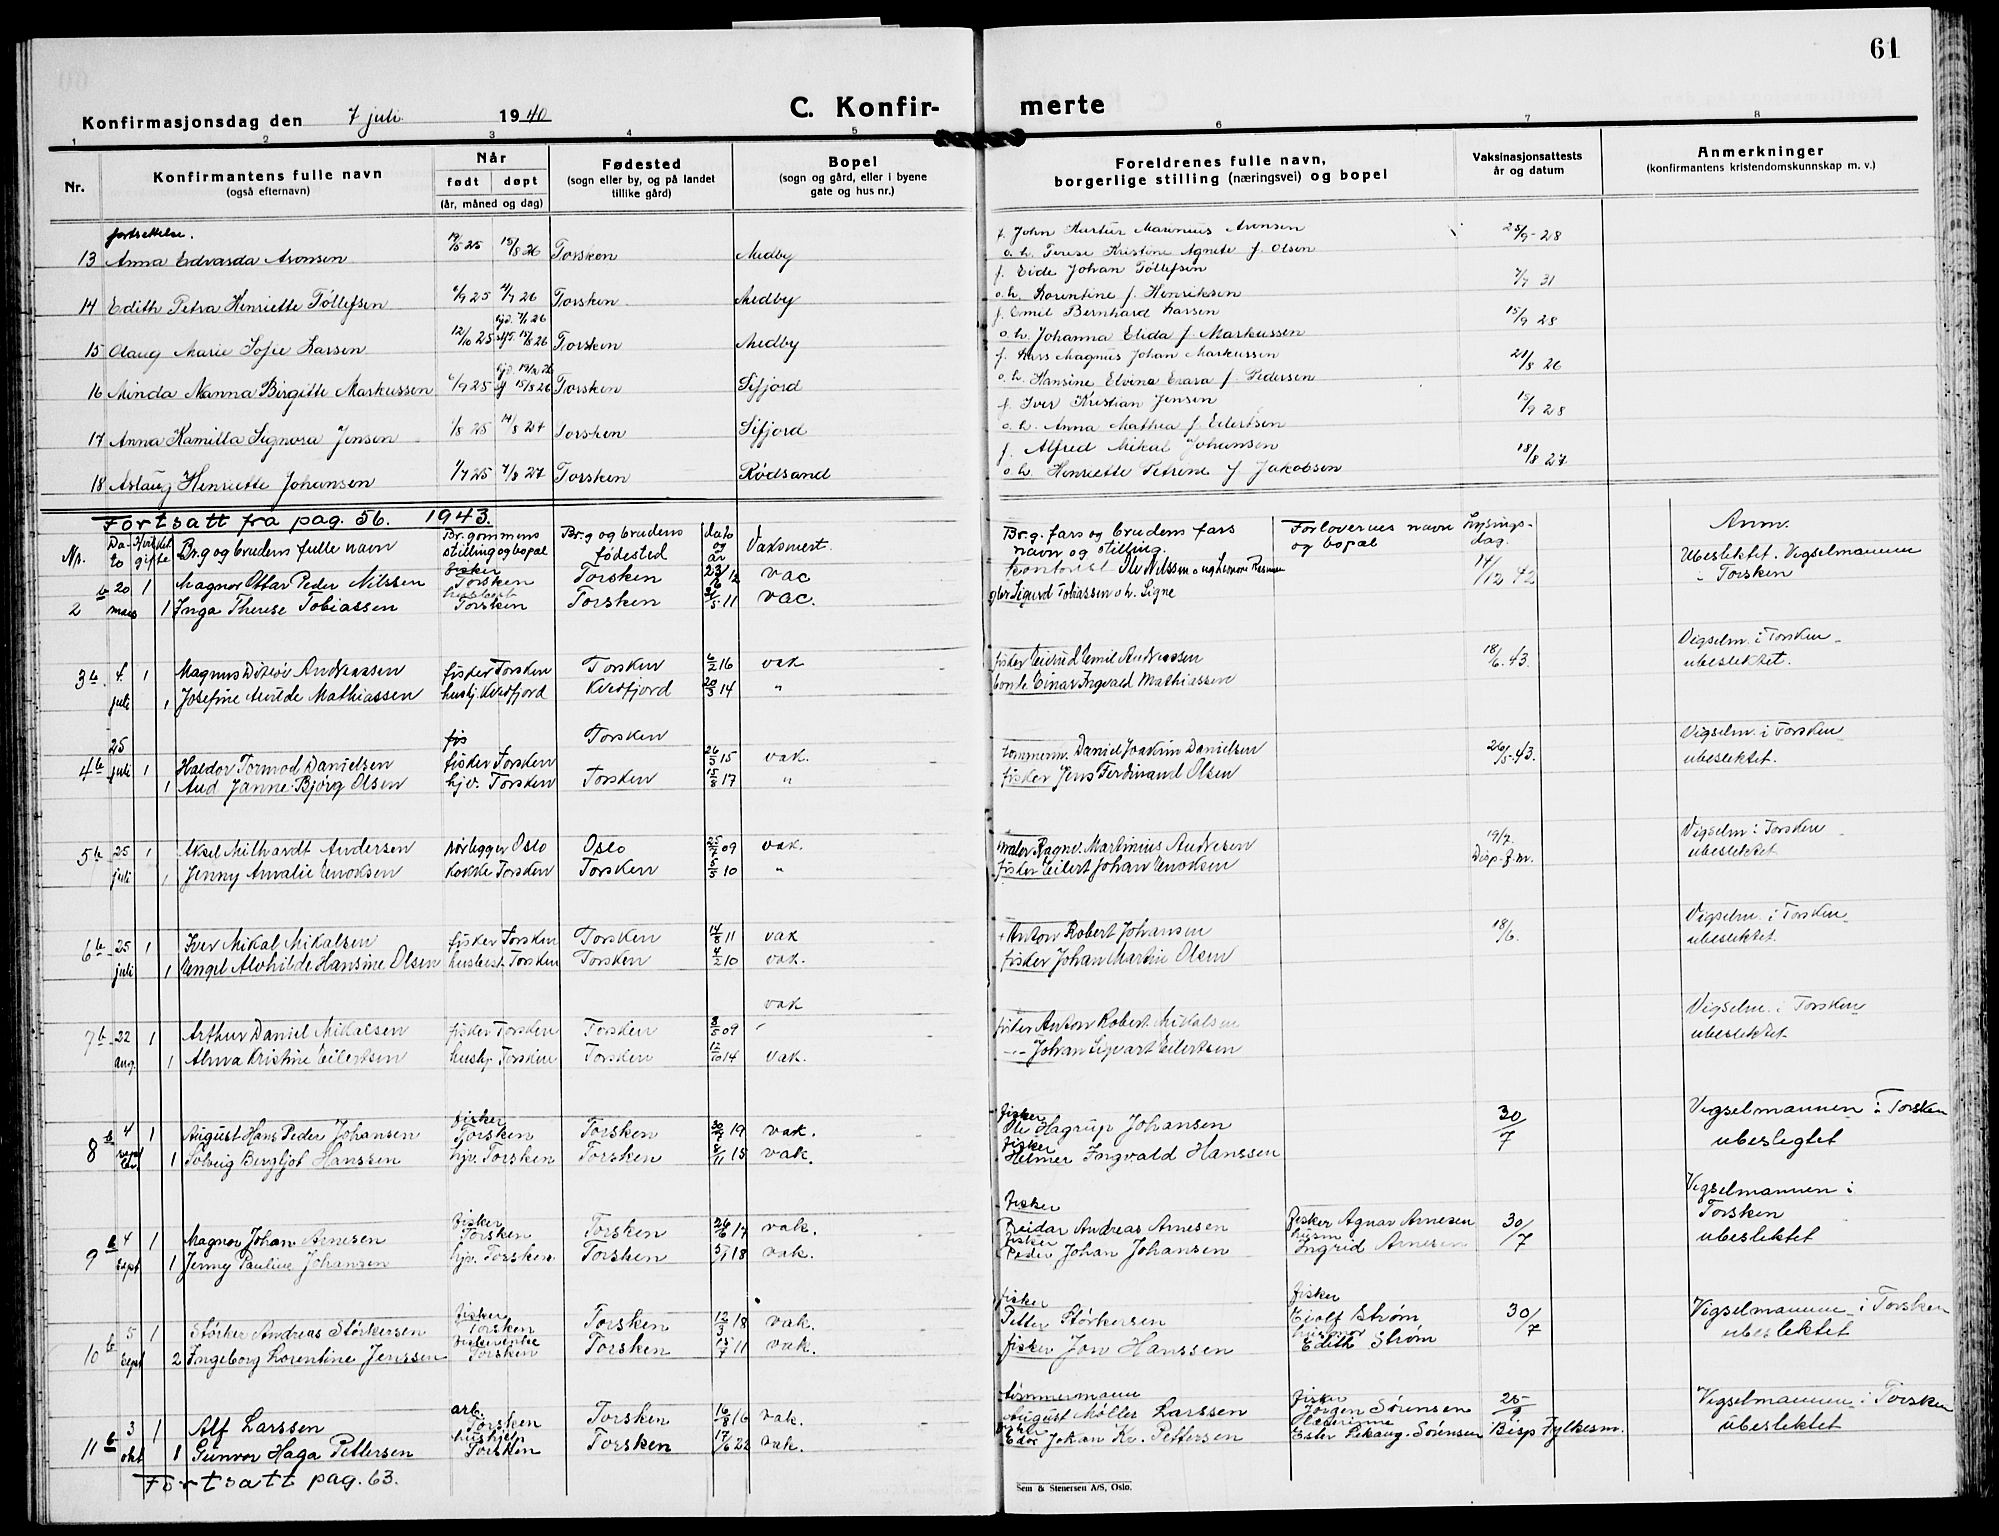 61
C. Konfir- merte
Konfirmasjonsdag den 7 juli 1940
1 2 3 4 5 6 7 8
Nr. Konfirmantens fulle navn (også efternavn) Når født døpt (år, måned og dag) Fødested (sogn eller by, og på landet tillike gård) Bopel (sogn og gård, eller i byene gate og hus nr.) Foreldrenes fulle navn, borgerlige stilling (næringsvei) og bopel Vaksinasjonsattests år og datum Anmerkninger (konfirmantens kristendomskunnskap m. v.)
fortsettelse.
13 Anna Edvarda Aronsen 19/5 25 15/8 26 Torsken Medby f. John Aurtur Marinius Aronsen
o. h. Terese Kristine Agnete f. Olsen 25/9-28
14 Edith Petra Henriette Tøllefsen 6/9 25 4/7 26 Torsken Medby f. Eide Johan Tøllefsen
o. h. Lorentine f. Henriksen 7/7 31
15 Olaug Marie Sofie Larsen 12/10 25 15/8 26 Torsken Medby f. Emil Bernhard Larsen
o. h. Johanna Elida f. Markussen 15/9 28
16 Minda Nanna Birgitte Markussen 6/9 25 15/8 26 Torsken Sifjord f. Lars Magnus Johan Markussen
o. h. Hansine Elvina f. Pedersen 21/8 26
17 Anna Kamilla Signora Jensen 1/8 25 14/8 27 Torsken Sifjord f. Iver Kristian Jensen
o. h. Anna Mathea f. Eilertsen 15/9 28
18 Aslaug Henriette Johansen 1/7 25 7/8 27 Torsken Rødsand f. Alfred Mikal Johansen
o. h. Henriette Petrine f Jakobsen 18/8 27
Fortsatt fra pag. 56. 1943.
Nr. Dato Br.g og brudens fulle navn Br.gommens stilling og bopæl Br.g og brudens fødested dato og år Vaksinert. Br.g. fars og brudens fars navn og stilling. Forlovernes navn og bopæl Lysings-dag. Anm.
2 b 20 1 Magnor Ottar Peder Nilssen fisker Torsken Torsken 23/6 12 vac kontorist Ole Nilssen 14/12 42 Ubeslektet. Vigselmannen
mars 1 Inga Therese Tobiassen Torsken Torsken 5 11 vac. Sigurd Tobiassen o h. Signe i Torsken
3 b. 4 1 Magnus Andreassen fisker Torsken Torsken 6/2 16 vak fisker Emil Andreassen 18/6.43. Vigselm. i Torsken
juli 1 Josefine Mathiassen husbj. Kvedfjord Kvedfjord 20/3 14 " Einar Ingvald Mathiassen ubeslektet.
4 b 25 juli 1 Haldor Tormod Danielsen fisker Torsken Torsken 26/5 15 vak. tømmerm. Daniel Joakim Danielsen 26/5-43. Vigselm. i Torsken
1 Aud Janne Bjørg Olsen hjv. Torsken Torsken 15/8 17 " fisker Jens Ferdinand Olsen ubeslektet.
5 b 25 1 Aksel Milhardt Andersen rørlegger Oslo Oslo 25/7 09 vak. maler Ragnv. Martinius Andresen 19/7. Vigselm i Torsken
juli 1 Jenny Amalie Enoksen kokke Torsken Torsken 5/5 10 " fisker Eilert Johan Enoksen Disp. f. m. ubeslektet.
6 b 25 1 Iver Mikal Mikalsen fisker Torsken Torsken 14/8 11 vak + Anton Robert Johansen 18/6. Vigselm. i Torsken
juli 1 Engel Alvhilde Hansine Olsen husbest. Torsken Torsken 4/2 10 vak. fisker Johan Martin Olsen ubeslektet.
7 b 22 1 Arthur Daniel Mikalsen fisker Torsken Torsken 8/5 09 vak fisker Anton Robert Mikalsen Vigselm. i Torsken
aug. 1 Alma Kristine Eilertsen husbj. Torsken Torsken 12/10 14 vak. Johan Sigvart Eilertsen ubeslektet
8 b 4 1 August Hans Peder Johansen fisker Torsken Torsken 19 vak. fisker Ole Hagrup Johansen 30/7 Vigselmannen i Torsken
1 Solveig Bergljot Hanssen hjv. Torsken Torsken 8/11 15 vak. fisker Helmer Ingvald Hanssen ubeslegtet
9 b 4 1 Magnor Johan Arnesen fisker Torsken Torsken 26/6 17 vak. fisker Reidar Andreas Arnesen fisker Agnar Arnesen 30/7 Vigselmannen i Torsken
sept 1 Jenny Pauline Johansen hjv. Torsken Torsken 18 vak. fisker Peder Johan Johansen husm Ingrid Arnesen ubeslektet
10 b 5 1 Størker Andreas Størkersen fisker Torsken Torsken 12/3 18 vak. fisker Petter Størkersen fisker Eiolf Strøm 30/7 Vigselmannen i Torsken
sept 2 Ingeborg Lorentine Jenssen Torsken Torsken 15/7 11 vak. fisker Jon Hanssen husmor Edith Strøm ubeslektet
11 b 3 1 Alf Larssen arb. Torsken Torsken 16/8 16 vak. tømmermann August Møller Larssen fisker Jørgen Sørensen 25/9 Vigselmannen i Torsken
okt 1 Gunvor Haga Pettersen hushjelp Torsken Torsken 17/6 22 vak. Edor Johan Kr. Pettersen Ester Sekaug. Sørensen Bisp Fylkesm. ubeslektet
Fortsatt pag. 63.
Sem & Stenersen A/S, Oslo.